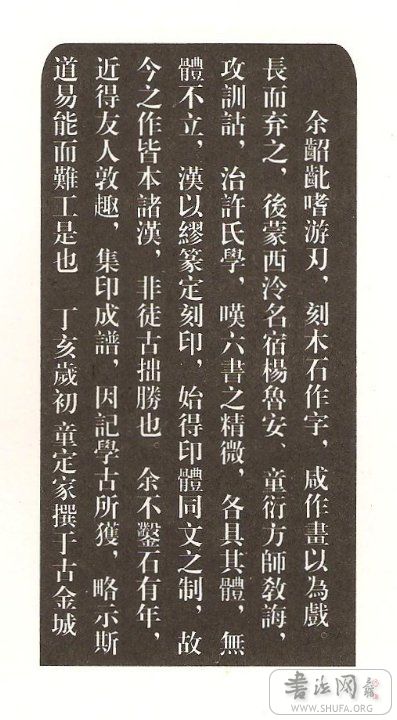 余齠齔嗜游刃，刻木石作字，咸作畫以為戲。
長而弃之，後蒙西泠名宿楊魯安、童衍方師教誨，
攻訓詁，治許氏學，嘆六書之精微，各具其體，無
體不立，漢以繆篆定刻印，始得印體同文之制，故
今之作皆本諸漢，非徒古拙勝也。余不鑿石有年，
近得友人敦趣，集印成譜，因記學古所獲，略示斯
道易能而難工是也　丁亥歲初童定家撰于古金城
書法网
WWW.SHUFA.ORG